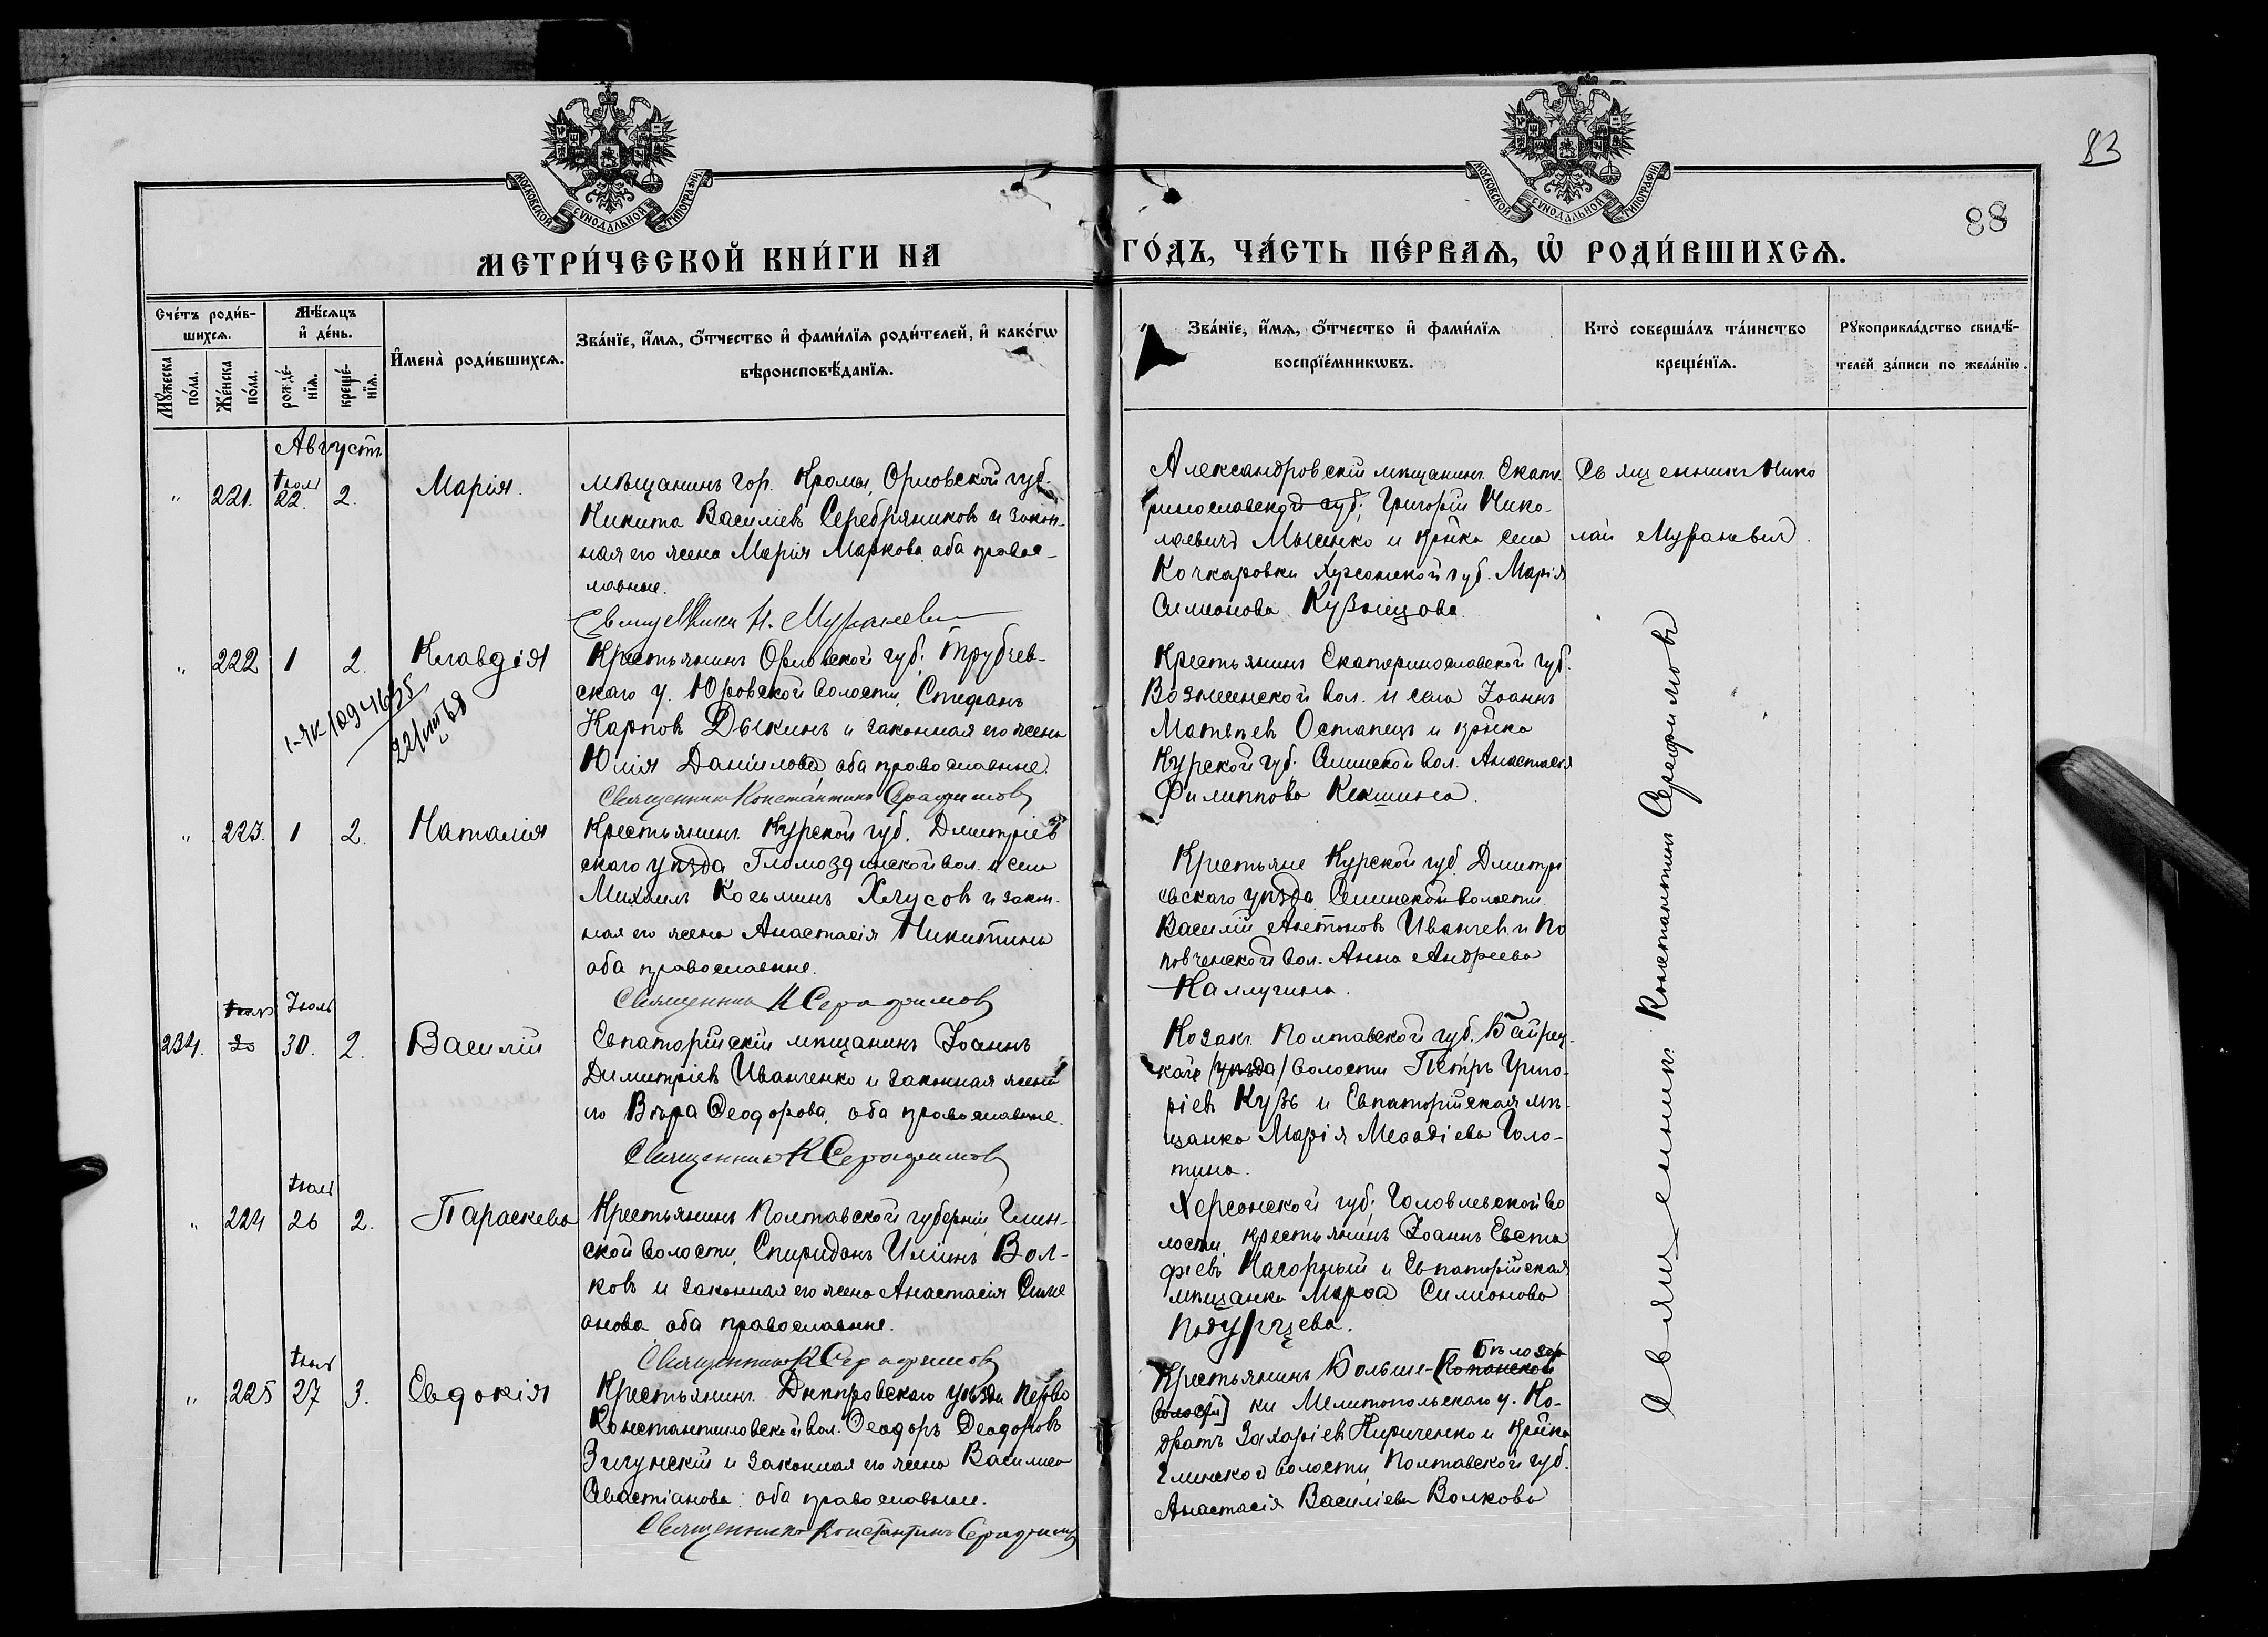 83
88
МОСКОВСКОЙ СѴНОДАЛЬНОЙ ТИПОГРАФІИ
МОСКОВСКОЙ СѴНОДАЛЬНОЙ ТИПОГРАФІИ
МЕТРИ́ЧЕСКОЙ КНИ́ГИ НА ГО́ДЪ, ЧА́СТЬ ПЕ́РВАѦ, Ѡ҆ РОДИ́ВШИХСѦ.
Сче́тъ роди́в-
шихсѧ.
Мꙋ́жеска по́ла.
Же́нска по́ла.
Мѣ́сѧцъ
и҆ де́нь.
рожде́-
нїѧ.
креще́-
нїѧ.
И҆мена̀ роди́вшихсѧ.
Зва́нїе, и҆́мѧ, ѻ҆́тчество и҆ фами́лїѧ роди́телей, и҆ како́гѡ
вѣроисповѣ́данїѧ.
Зва́нїе, и҆́мѧ, ѻ҆́тчество и҆ фами́лїѧ
воспрїе́мникѡвъ.
Кто̀ соверша́лъ та́инство
креще́нїѧ.
Рꙋкоприкла́дство свидѣ́-
телей за́писи по жела́нїю.
Августъ
Іюля
" 221. 22. 2. Марія.
мѣщанинъ гор. Кромы, Орловской губ.
Никита Василіевъ Серебряниковъ и закон-
ная его жена Марія Маркова оба право-
славные.
Священникъ Н. Мураневичъ
Александровскій мѣщанинъ Екате
ринославской губ. Григорій Нико-
лаевичъ Мысенко и кр-нка села
Кочкаровки Херсонской губ. Марія
Симеонова Кузнецова.
Священникъ Нико
лай Мураневич.
" 222 1 2. Клавдія
1-ЯК 1094635
22/
Крестьянинъ Орловской губ. Трубчев-
скаго у. Юровской волости, Стефанъ
Карповъ Дыкинъ и законная его жена
Юлія Даніилова, оба православные.
Священникъ Константинъ Серафимовъ
Крестьянинъ Екатеринославской губ.
Вознесенской вол. и села Іоаннъ
Матвѣевъ Остапецъ и кр-нка
Курской губ. Селинской вол. Анастасія
Филиппова Кекшина.
" 223. 1 2. Наталія
Крестьянинъ Курской губ. Дмитріев
скаго уѣзда Гломоздинской вол. и села
Михаилъ Козьминъ Хлусовъ и закон.
ная его жена Анастасія Никитина
оба православные.
Священникъ К Серафимовъ
Крестьяне Курской губ. Дмитрі
евскаго уѣзда Селинской волости
Василій Антоновъ Иванчев. и По
повченской вол. Анна Андреева
Каллугина.
Іюля
234. 20 30. 2. Василій
Евпаторійскій мѣщанинъ Іоаннъ
Димитріевъ Иванченко и законная жена
его Вѣра Ѳеодорова, оба православные.
Священникъ К Серафимовъ
Козакъ Полтавской губ. Байрац-
каго (уѣзда) волости Петръ Григо-
ріевъ Кузь и Евпаторійская мѣ-
щанка Марія Меѳодіева Голо-
тина.
Іюля
" 224 26 2. Параскева
Крестьянинъ Полтавской губерніи, Глин-
ской волости, Спиридонъ Иліинъ Вол-
ковъ и законная его жена Анастасія Симе
онова оба православные.
Священникъ К Серафимовъ
Херсонской губ. Головлевской во
лости крестьянинъ Іоаннъ Евста
фіевъ Нагорный и Евпаторійская
мѣщанка Марѳа Симеонова
Іюля
" 225 27 3. Евдокія
Крестьянинъ Днѣпровскаго уѣзда Перво
Константиновской вол. Ѳеодоръ Ѳеодоровъ
Зигунскій и законная его жена Василиса
Севастіанова: оба православные.
Священникъ Константинъ Серафимовъ
Бѣлозер
Крестьянинъ Больше-[Копанской
волости] ки Мелитопольскаго у. Ко-
дратъ Захаріевъ Кириченко и кр-нка
Глинской волости Полтавской губ.
Анастасія Василіева Волкова
Священникъ Константинъ Серафимовъ